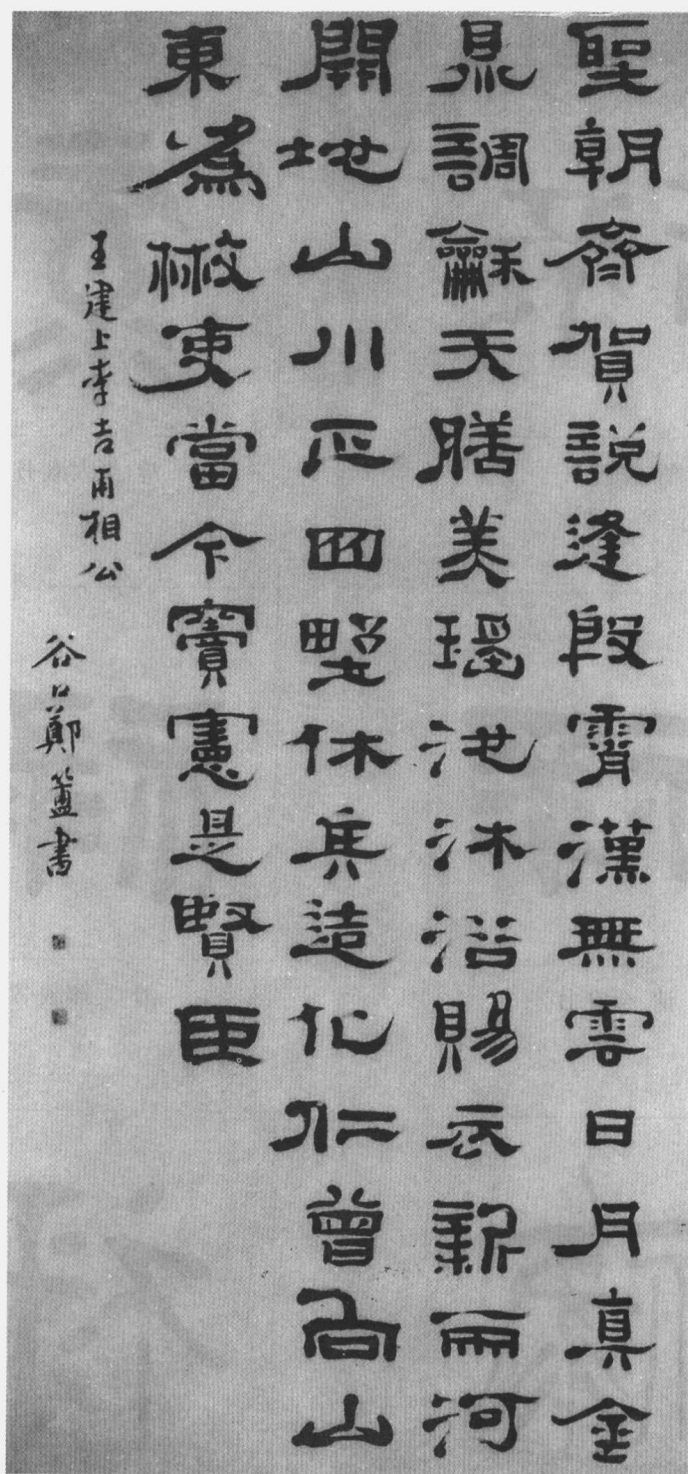 聖朝齊賀說逢殷霄漢無雲日月真金
鼎調龢天膳美瑤池沐浴賜衣新兩河
開地山川正四野休兵造化仁曾向山
東為散吏當今竇憲是賢臣
王建上李吉甫相公
谷口鄭簠書